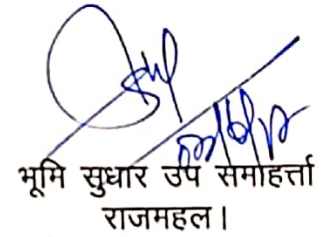 भूमि सुधार उप समाहर्त्ता
राजमहल।